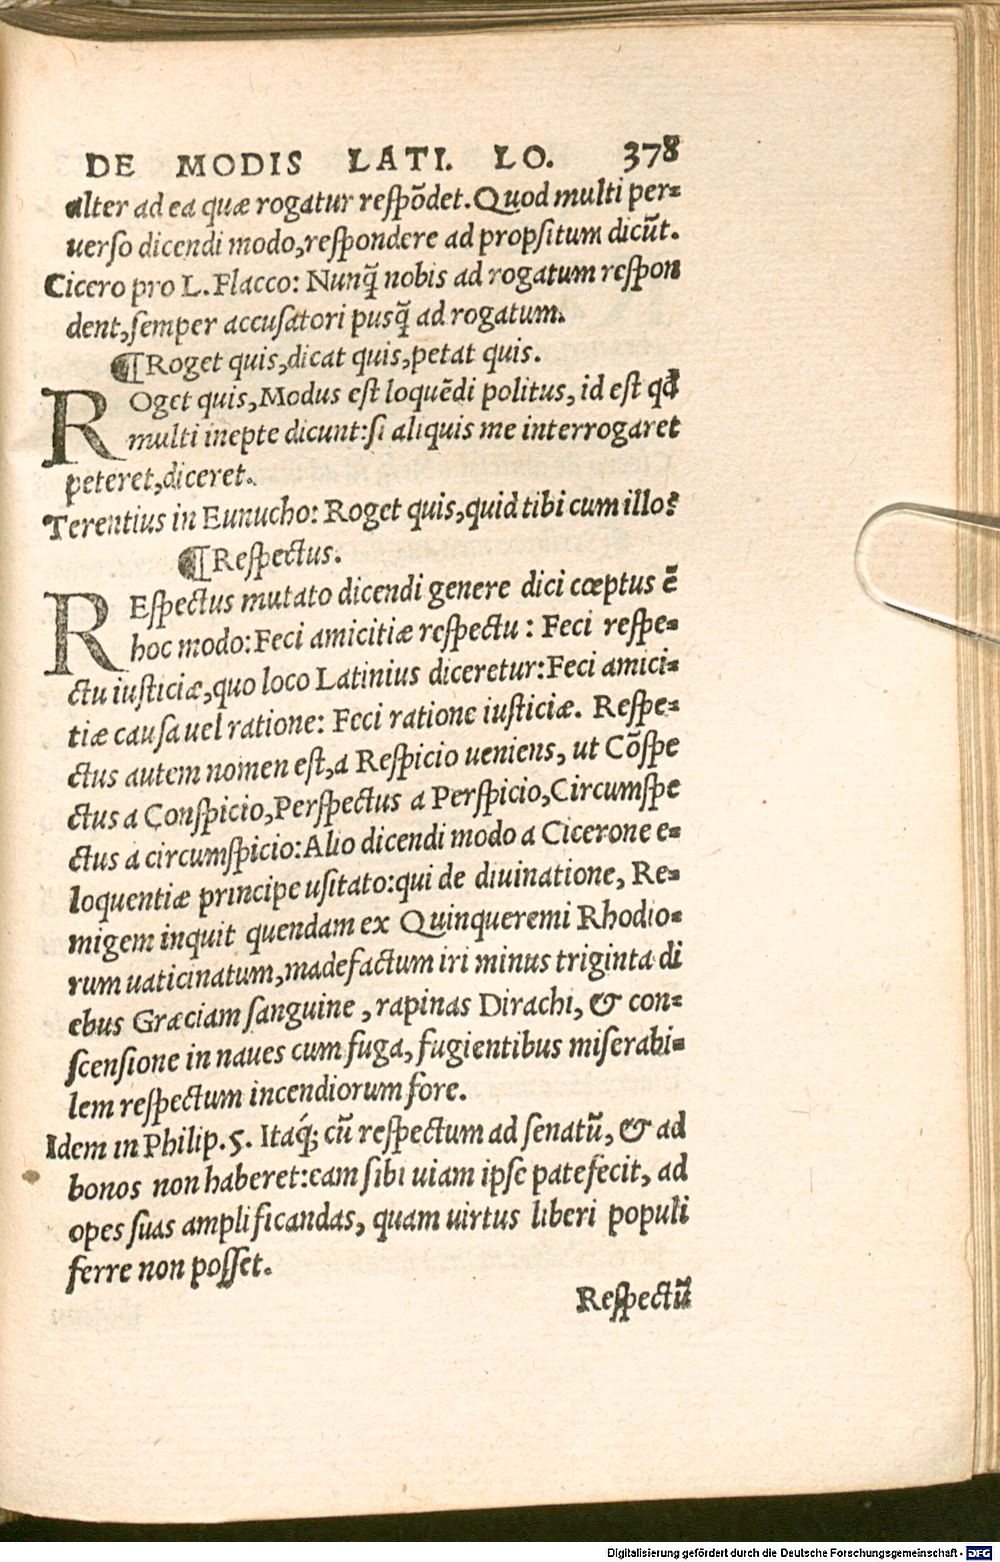 DE MODIS LATI. LO. 378
alter ad ea quæ rogatur respõdet. Quod multi per=
uerso dicendi modo, respondere ad propsitum dicũt.
Cicero pro L. Flacco: Nunq̃ nobis ad rogatum respon
dent, semper accusatori pusq̃ ad rogatum.
¶ Roget quis, dicat quis, petat quis.
ROget quis, Modus est loquẽdi politus, id est qđ
multi inepte dicunt: si aliquis me interrogaret
peteret, diceret.
Terentius in Eunucho: Roget quis, quid tibi cum illo?
¶ Respectus.
REspectus mutato dicendi genere dici cœptus ẽ
hoc modo: Feci amicitiæ respectu: Feci respe=
ctu iusticiæ, quo loco Latinius diceretur: Feci amici=
tiæ causa uel ratione: Feci ratione iusticiæ. Respe=
ctus autem nomen est, a Respicio ueniens, ut Cõspe
ctus a Conspicio, Perspectus a Perspicio, Circumspe
ctus a circumspicio: Alio dicendi modo a Cicerone e=
loquentiæ principe usitato: qui de diuinatione, Re=
migem inquit quendam ex Quinqueremi Rhodio=
rum uaticinatum, madefactum iri minus triginta di
ebus Græciam sanguine, rapinas Dirachi, & con=
scensione in naues cum fuga, fugientibus miserabi=
lem respectum incendiorum fore.
Idem in Philip. 5. Itaq́; cũ respectum ad senatũ, & ad
bonos non haberet: eam sibi uiam ipse patefecit, ad
opes suas amplificandas, quam uirtus liberi populi
ferre non posset.
Respectũ
Digitalisierung gefördert durch die Deutsche Forschungsgemeinschaft - DFG